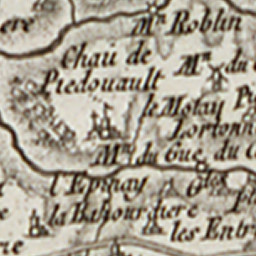 ere
Mⁿ Roblin
Chaũ de
Piedouault
Mⁿ du
le Motay
Lorionn
Mⁿ du Gué du
l'Epinay
la Bihourdiere
les Entr
re